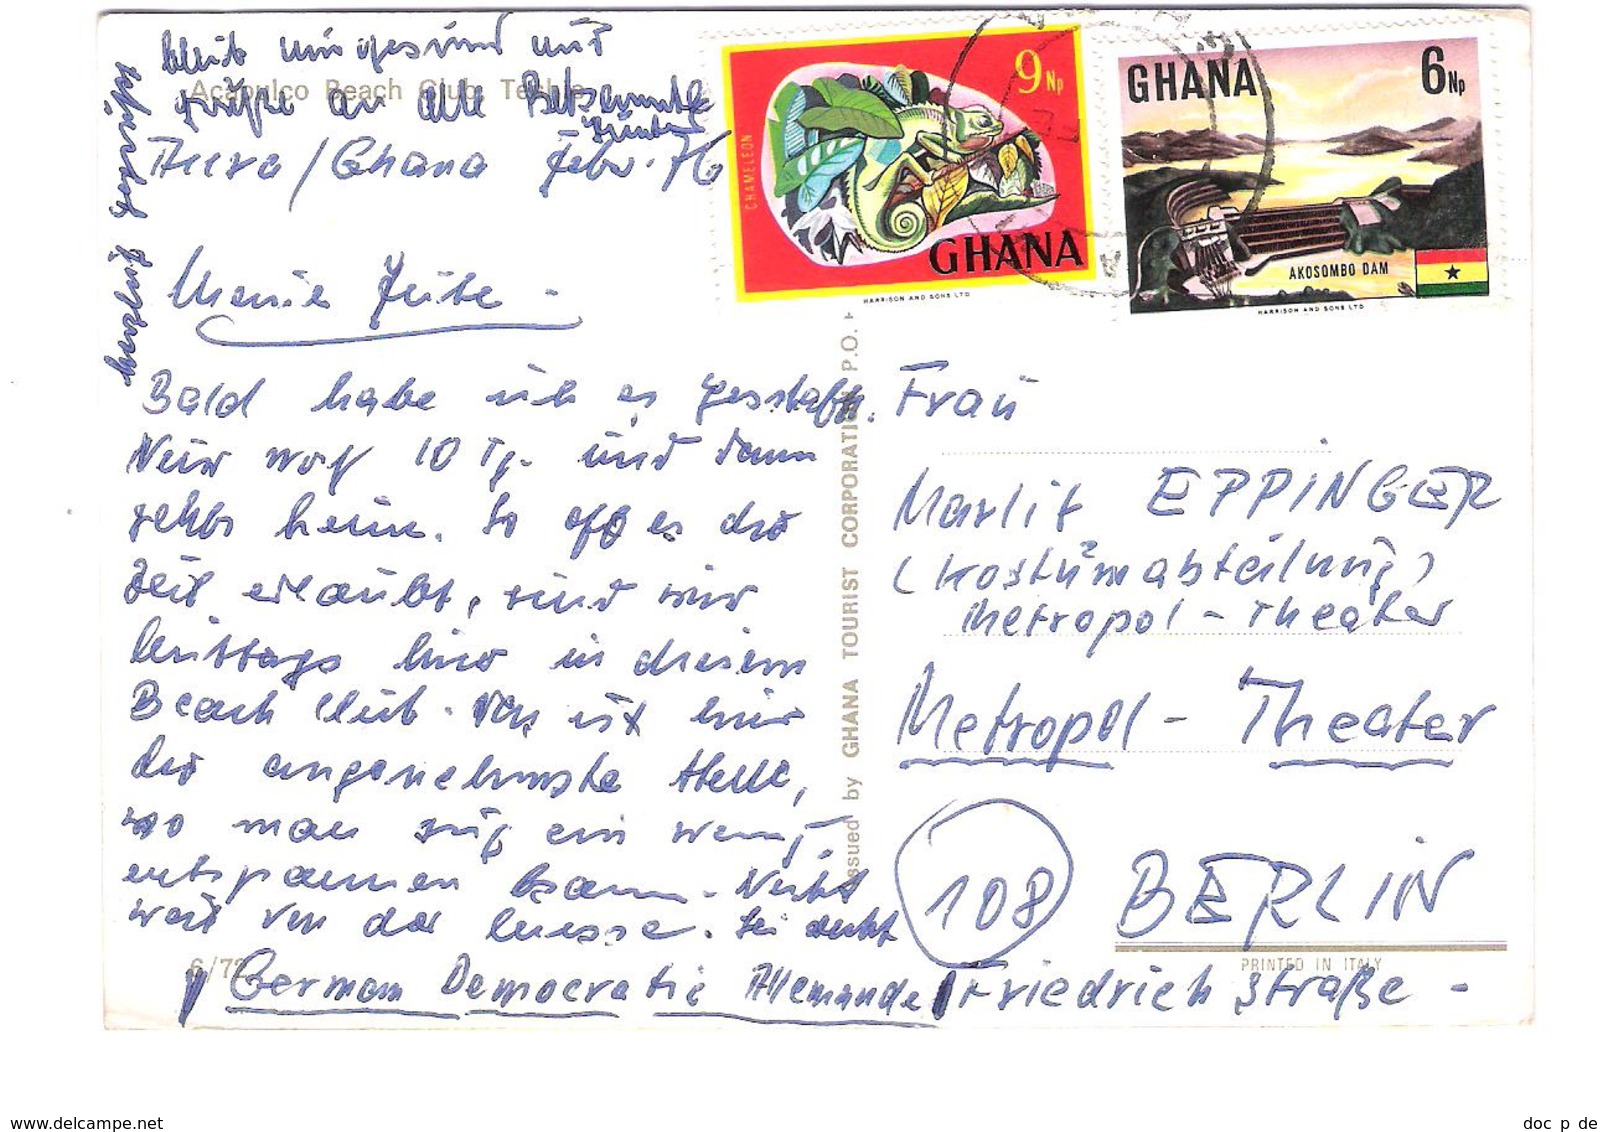 bleib mir gesund und
Acapulco Beach Club, Teshie
grüße an alle
Accra/Ghana Febr. 76
herzlich gegrüßt
Bald habe ich es geschafft.
Nur noch 10 Tg. und dann
gehts heim. So oft es die
Zeit erlaubt, sind wir
hier in diesem
Beach Club. Das ist hier
die angenehmste Stelle,
wo man sich ein wenig
entspannen kann. Nicht
weit von der
6/72
CHAMELEON
9 Np
GHANA
HARRISON AND SONS LTD
GHANA
6 Np
AKOSOMBO DAM
HARRISON AND SONS LTD
Issued by GHANA TOURIST CORPORATION P.O.
Frau
Marlit EPPINGER
(Kostümabteilung)
Metropol-Theater
Metropol-Theater
108
BERLIN
PRINTED IN ITALY
Friedrichstraße -
German Democratic Allemande
doc p de